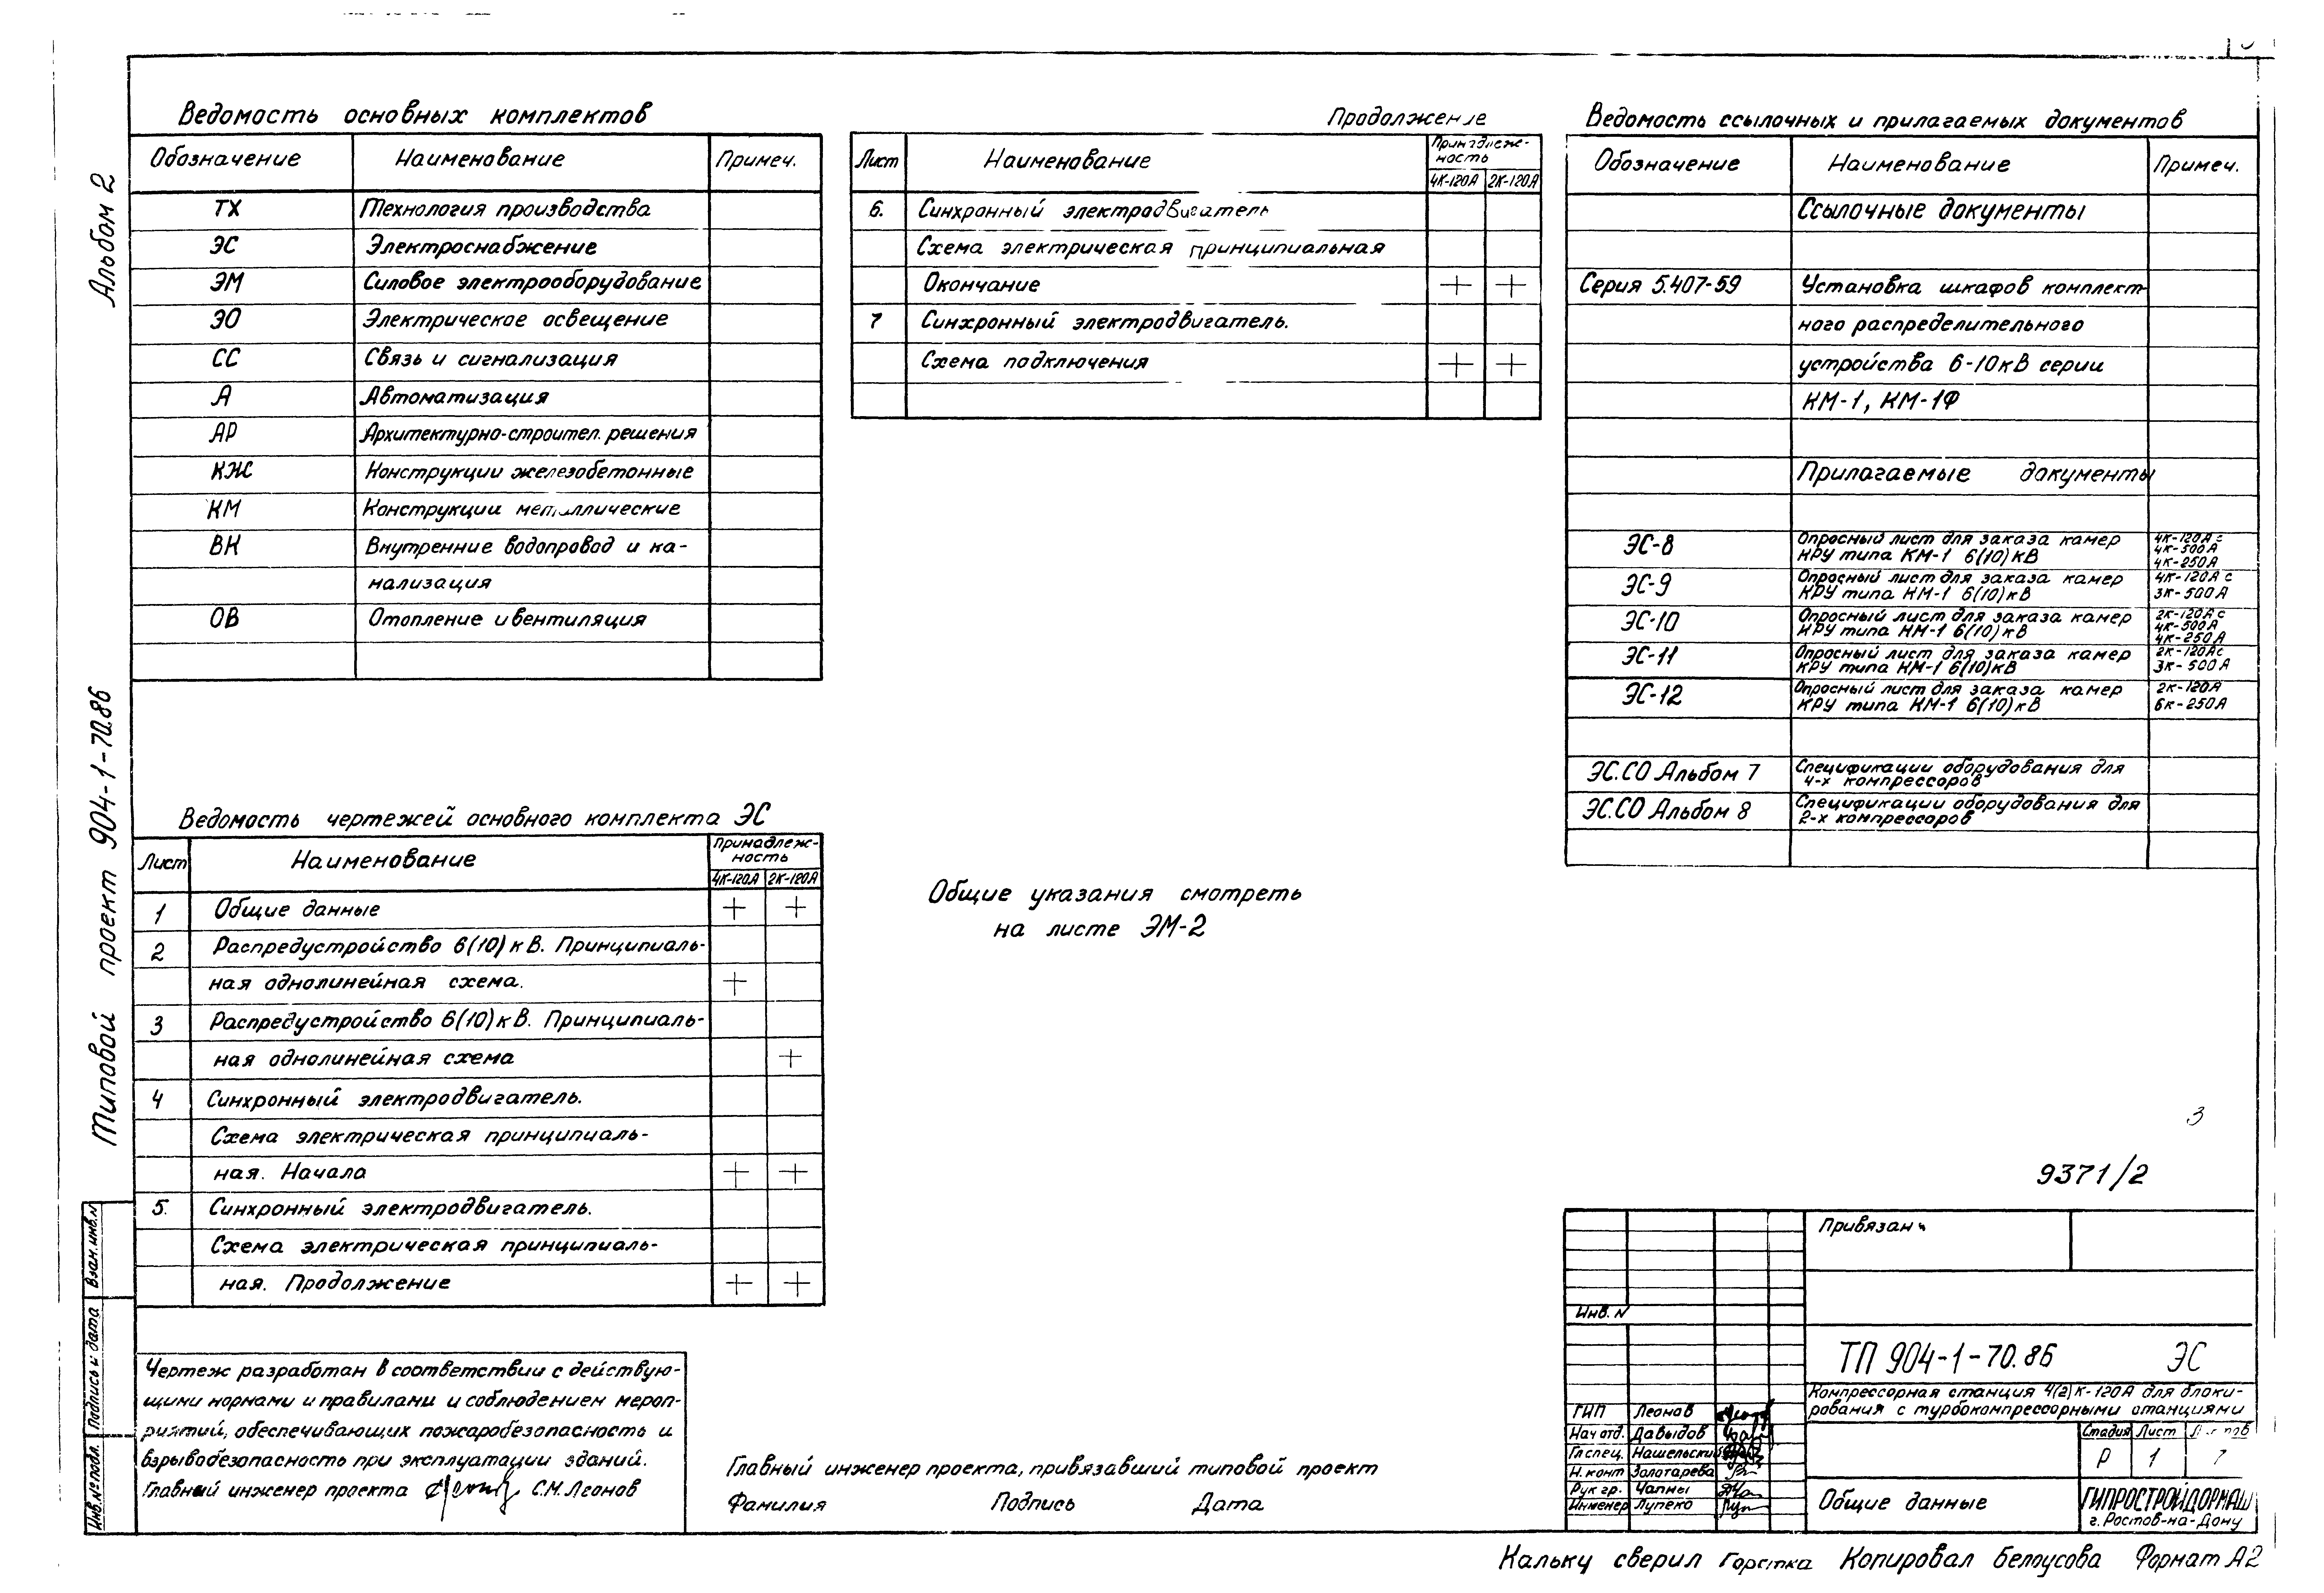 Альбом 2
Типовой проект 904-1-70.86
Взам.инв.№
Подпись и дата
Инв.№подл.
Ведомость основных комплектов
Обозначение Наименование Примеч.
ТХ Технология производства
ЭС Электроснабжение
ЭМ Силовое электрооборудование
ЭО Электрическое освещение
СС Связь и сигнализация
А Автоматизация
АР Архитектурно-строител. решения
КЖ Конструкции железобетонные
КМ Конструкции металлические
ВК Внутренние водопровод и ка-
нализация
ОВ Отопление и вентиляция
Ведомость чертежей основного комплекта ЭС
Лист Наименование Принадлеж-
ность
4К-120А 2К-120А
1 Общие данные + +
2 Распредустройство 6(10) кВ. Принципиаль-
ная однолинейная схема. +
3 Распредустройство 6(10) кВ. Принципиаль-
ная однолинейная схема +
4 Синхронный электродвигатель.
Схема электрическая принципиаль-
ная. Начало + +
5. Синхронный электродвигатель.
Схема электрическая принципиаль-
ная. Продолжение + +
Чертеж разработан в соответствии с действую-
щими нормами и правилами и соблюдением мероп-
риятий, обеспечивающих пожаробезопасность и
взрывобезопасность при эксплуатации зданий.
Главный инженер проекта С.М.Леонов
Продолжение
Лист Наименование Принадлеж-
ность
4К-120А 2К-120А
6. Синхронный электродвигатель
Схема электрическая принципиальная
Окончание + +
7 Синхронный электродвигатель.
Схема подключения + +
Общие указания смотреть
на листе ЭМ-2
Главный инженер проекта, привязавший типовой проект
Фамилия Подпись Дата
Ведомость ссылочных и прилагаемых документов
Обозначение Наименование Примеч.
Ссылочные документы
Серия 5.407-59 Установка шкафов комплект-
ного распределительного
устройства 6-10кВ серии
КМ-1, КМ-1Ф
Прилагаемые документы
ЭС-8 Опросный лист для заказа камер
КРУ типа КМ-1 6(10) кВ
4К-120А с
4К-500А
4К-250А
ЭС-9 Опросный лист для заказа камер
КРУ типа КМ-1 6(10) кВ
4К-120А с
3К-500А
ЭС-10 Опросный лист для заказа камер
КРУ типа КМ-1 6(10) кВ
2К-120А с
4К-500А
4К-250А
ЭС-11 Опросный лист для заказа камер
КРУ типа КМ-1 6(10) кВ
2К-120А с
3К-500А
ЭС-12 Опросный лист для заказа камер
КРУ типа КМ-1 6(10) кВ
2К-120А
6К-250А
ЭС.СО Альбом 7 Спецификации оборудования для
4-х компрессоров
ЭС.СО Альбом 8 Спецификации оборудования для
2-х компрессоров
3
9371/2
Привязан
Инв. N
ТП 904-1-70.86 ЭС
Компрессорная станция 4(2)К-120А для блоки-
рования с турбокомпрессорными станциями
ГИП Леонов
Нач отд. Давыдов
Гл спец. Нашельский
Н. конт Золотарева
Рук гр. Чапны
Инженер Лупеко
Стадия Лист
Р 1 7
Общие данные
ГИПРОСТРОЙДОРМАШ
г. Ростов-на-Дону
Кальку сверил Копировал Белоусова Формат А2